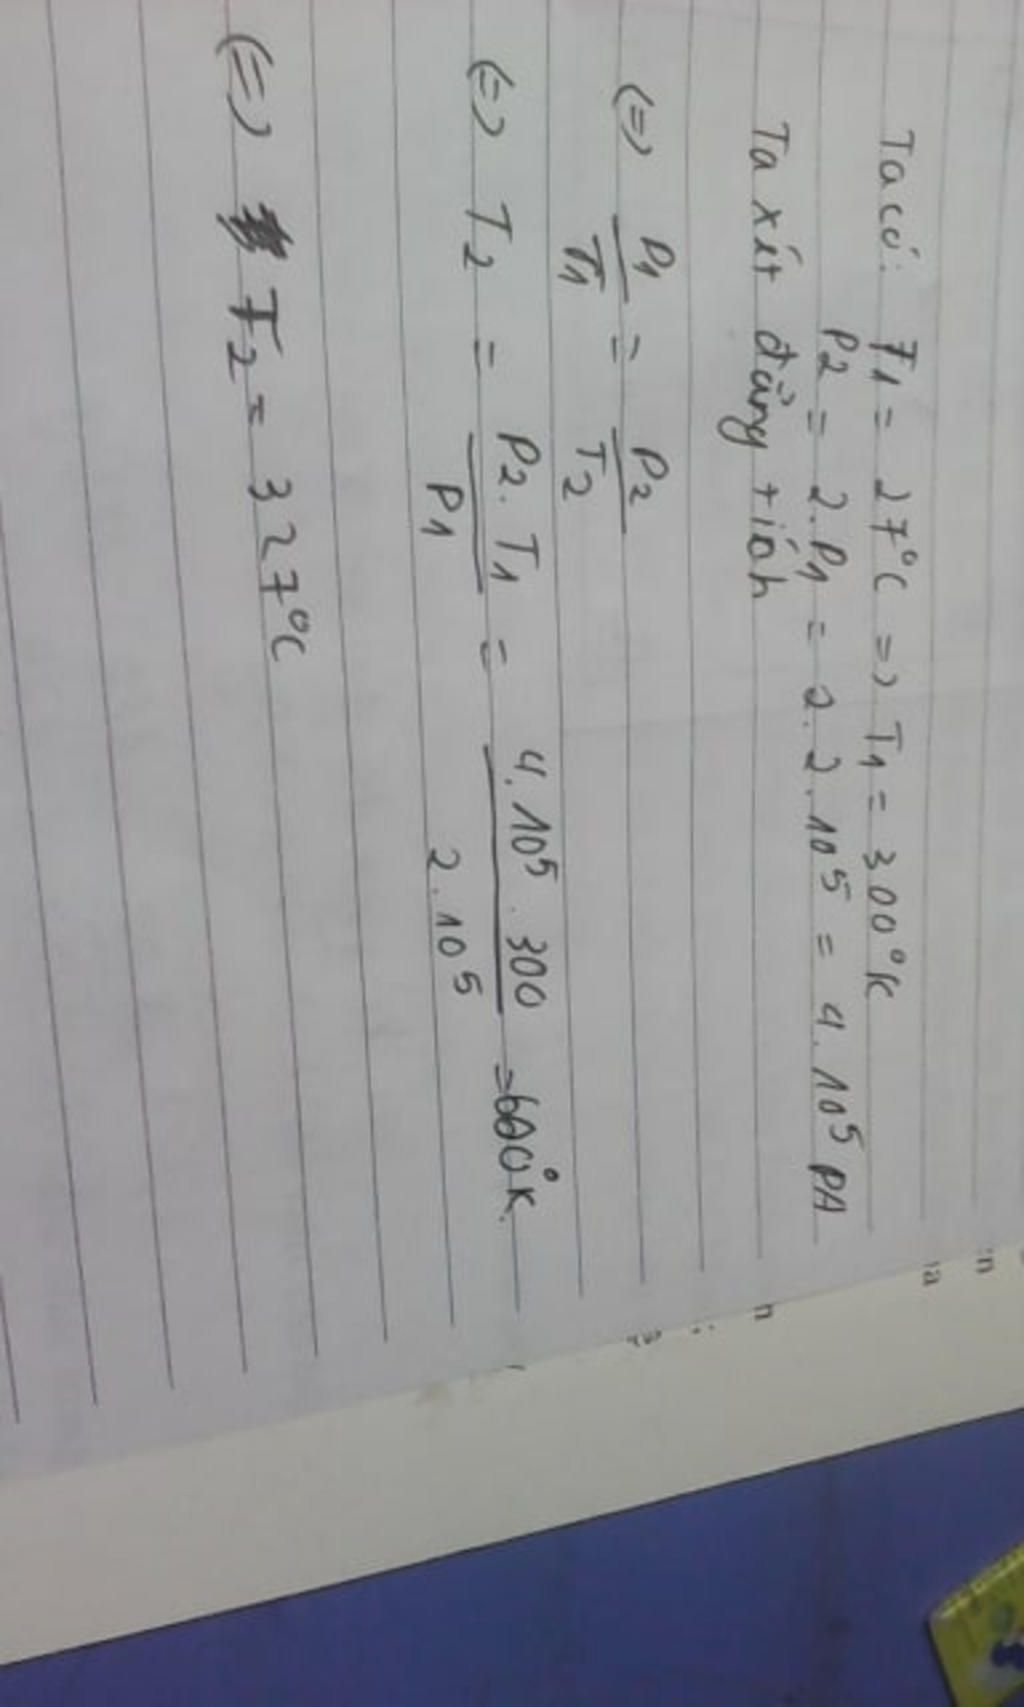 Ta có: T1 = 27°C => T1 = 300°K
P2 = 2.P1 = 2.2.10⁵ = 4.10⁵ PA
Ta xét đẳng tích
(=) P1/T1 = P2/T2
(=) T2 = P2.T1/P1 = 4.10⁵.300/2.10⁵ = 600°K.
(=) T2 = 327°C